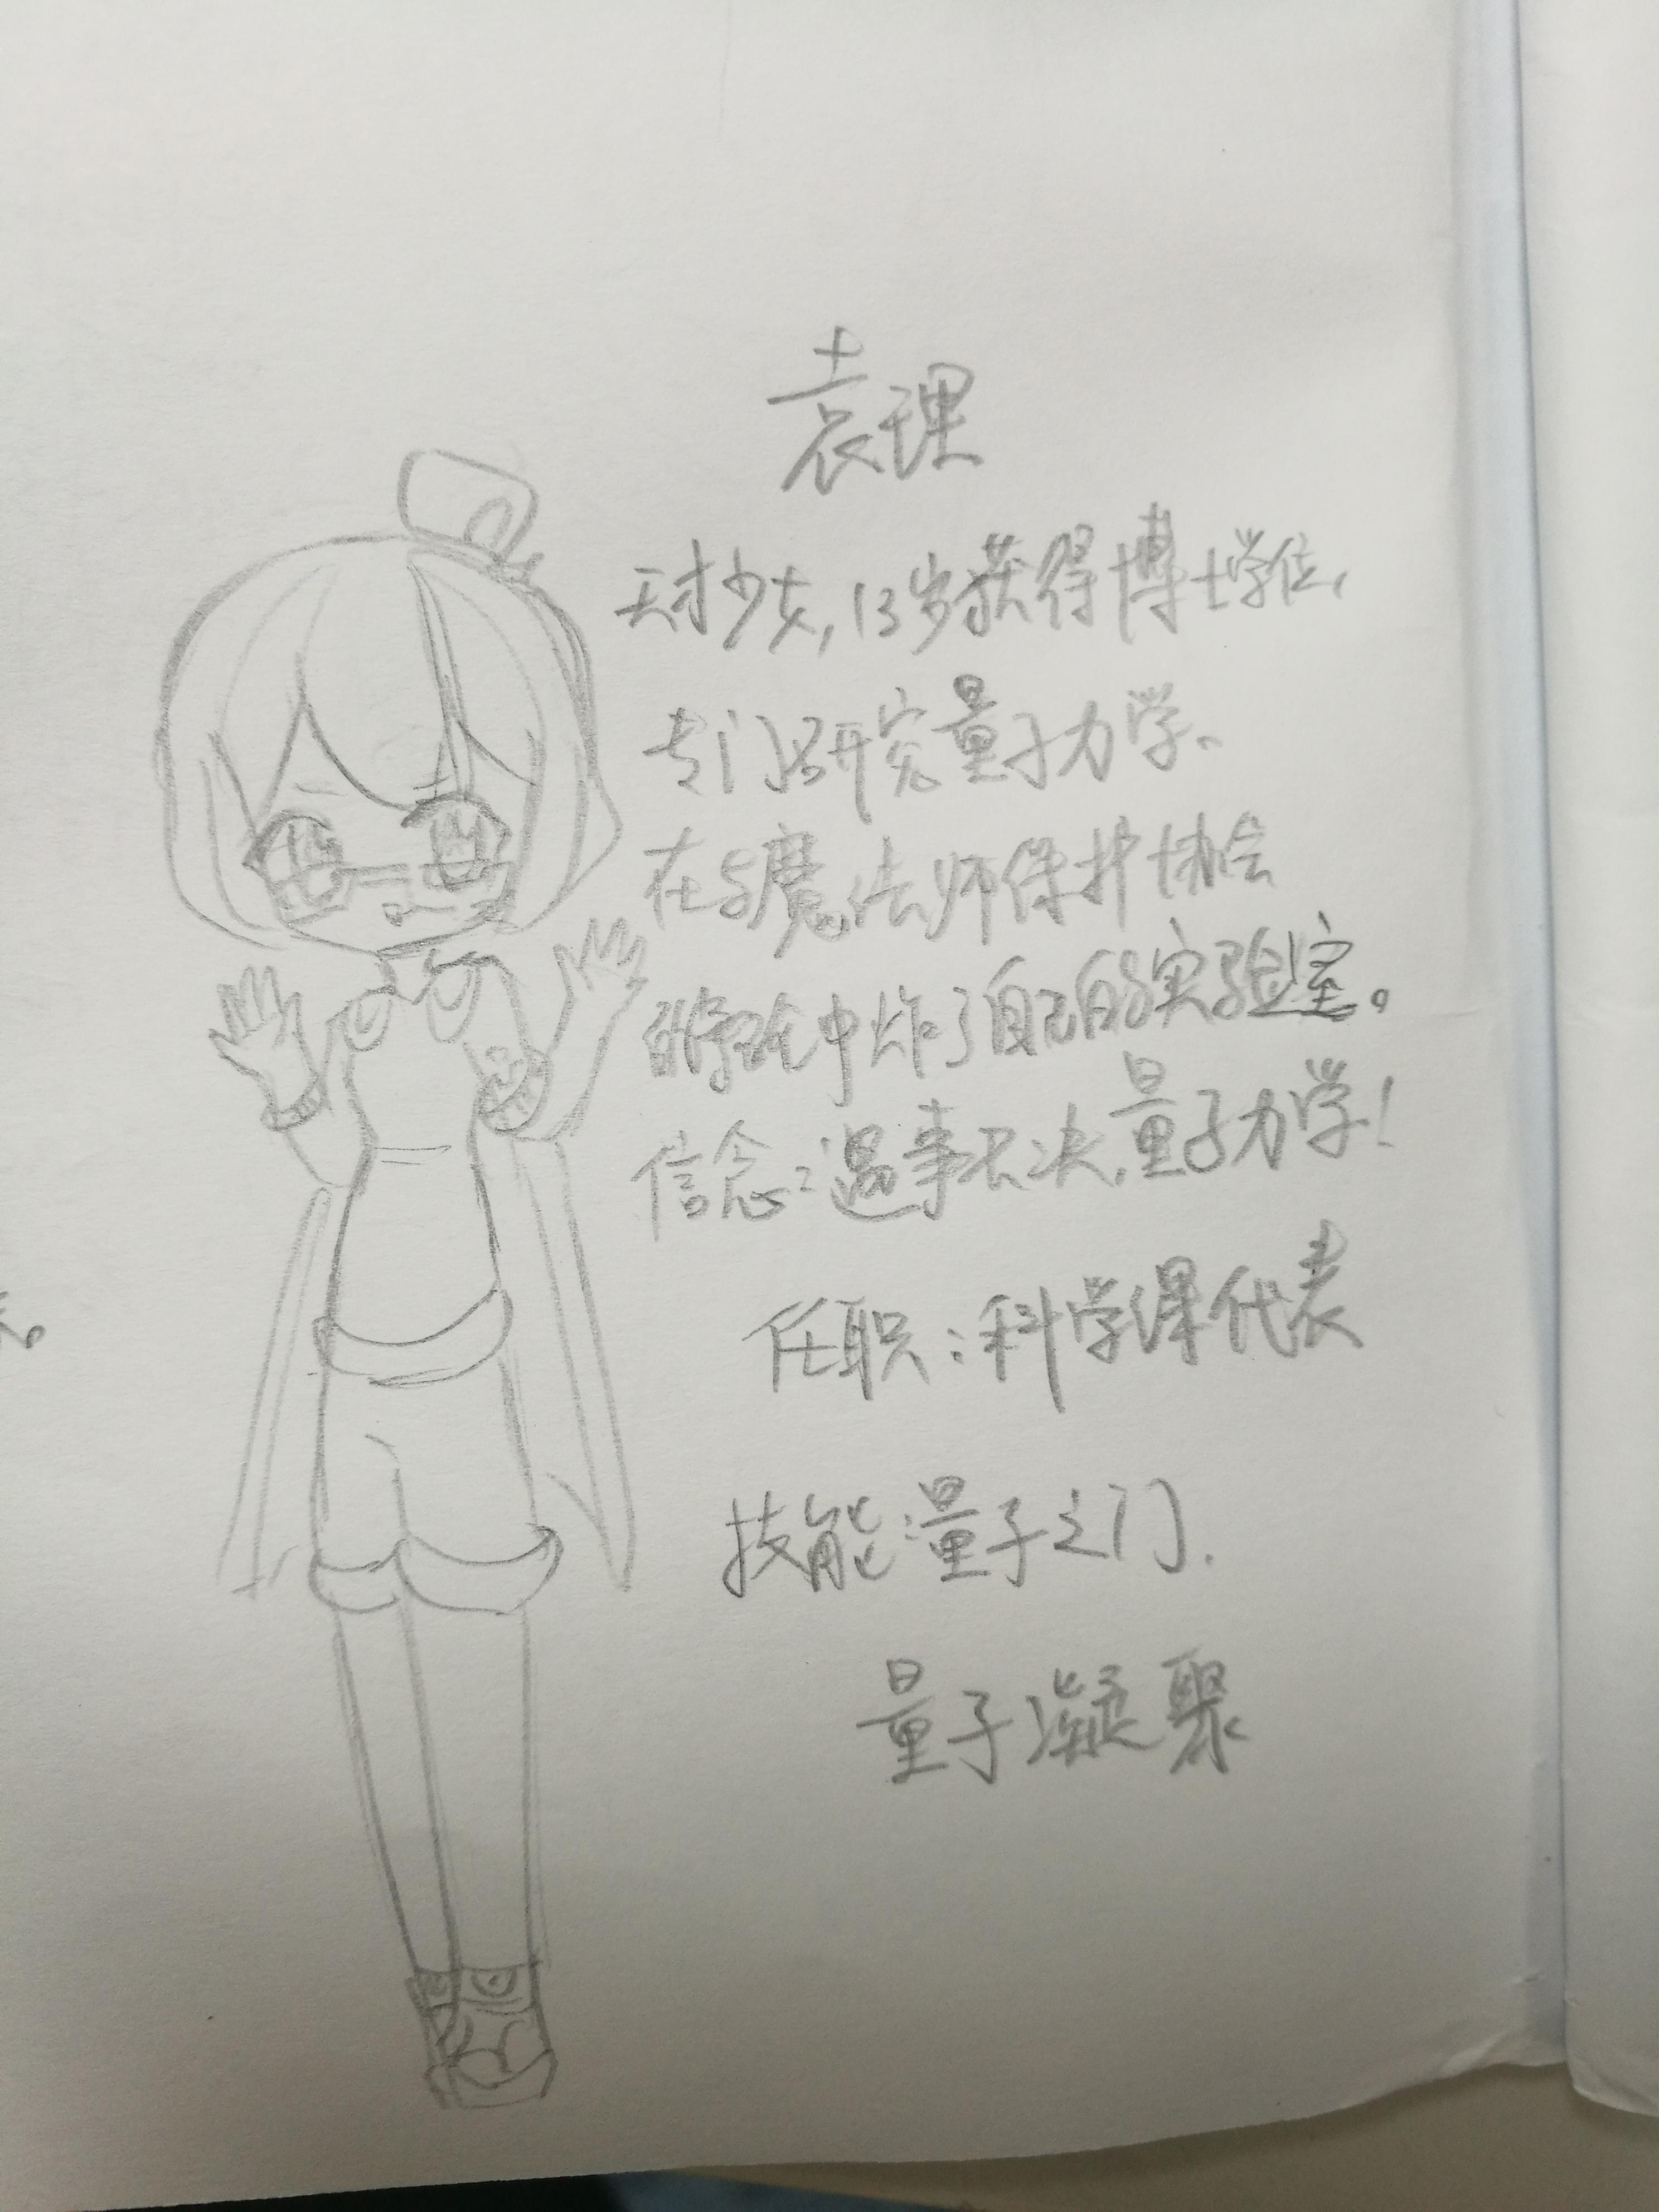 袁理
天才少女,13岁获得博士学位,
专门研究量子力学。
在与魔法师保护协会
的中炸了自己的实验室。
信念:遇事不决,量子力学!
任职:科学课代表
技能:量子之门.
量子凝聚